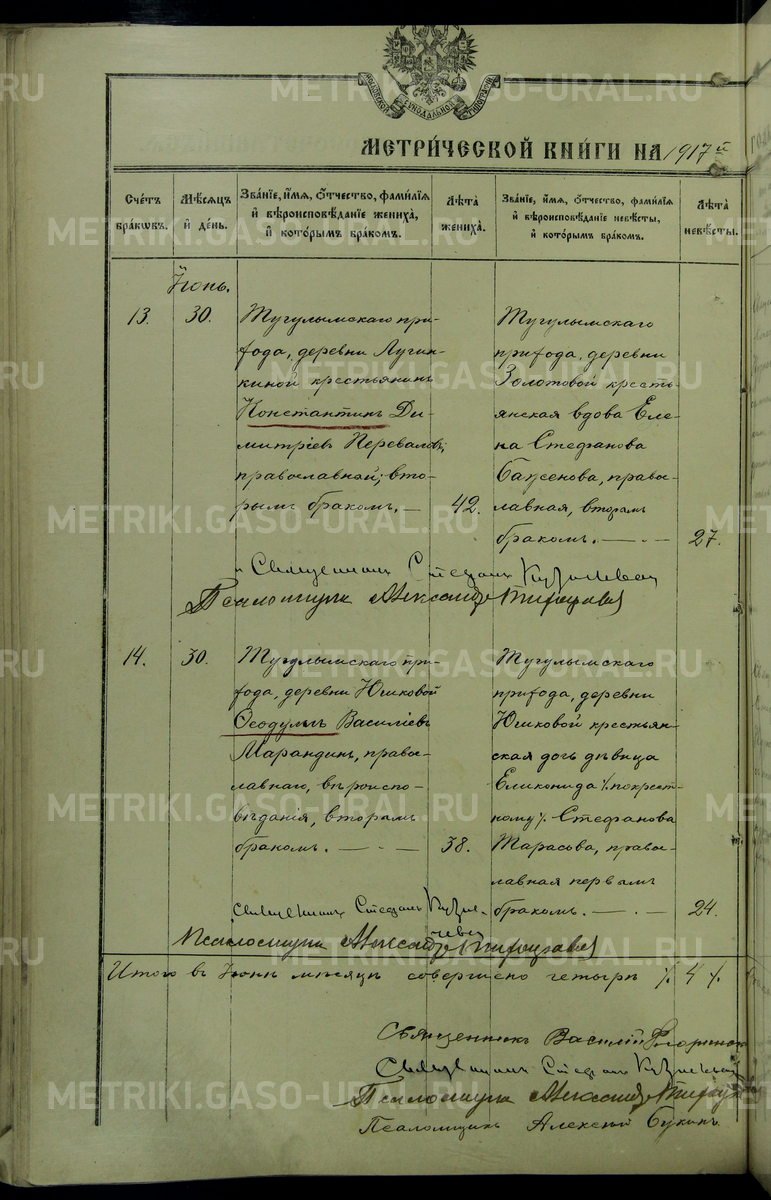 МЕТРИ́ЧЕСКОЙ КНИ́ГИ НА 1917й
Сче́тъ бра́кѡвъ.
Мѣ́сяцъ и҆ де́нь.
Зва́нїе, и҆́мя, ѻ҆́тчество, фами́лїя и҆ вѣроисповѣ́данїе жениха̀, и҆ кото́рымъ бра́комъ.
Лѣ́та жениха̀.
Зва́нїе, и҆́мя, ѻ҆́тчество, фами́лїя и҆ вѣроисповѣ́данїе невѣ́сты, и҆ кото́рымъ бра́комъ.
Лѣ́та невѣ́сты.
Іюнь.
13. 30.
Тугулымскаго при-
хода, деревни Лучин-
киной крестьянинъ
Константинъ Ди-
митріевъ Переваловъ,
православный; вто-
рымъ бракомъ. —
42.
Тугулымскаго
прихода, деревни
Золотовой кресть-
янская вдова Еле-
на Стефанова
Баксенова, правос-
лавная, вторымъ
бракомъ. — — 27.
Священникъ Стефанъ
Псаломщикъ Александръ
14. 30.
Тугулымскаго при-
хода, деревни Юшковой
Ѳеодулъ Василіевъ
Марандинъ, правос-
лавнаго, вѣроиспо-
вѣданія, вторымъ
бракомъ. — — —
38.
Тугулымскаго
прихода, деревни
Юшковой крестьян-
ская дочь дѣвица
Еликонида % по крест-
ному % Стефанова
Тарасова, правос-
лавная первымъ
бракомъ. — — 24.
Священникъ Стефанъ
Псаломщикъ Александръ
Итого въ Іюнѣ мѣсяцѣ совершено четыре % 4 %
Священникъ Василій
Священникъ Стефанъ
Псаломщикъ Александръ
Псаломщикъ Алексѣй Букинъ
METRIKI.GASO-URAL.RU